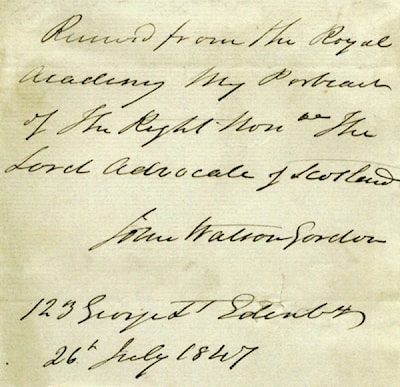 Received from the Royal
Academy My Portrait
of The Right Hon ble The
Lord Advocate of Scotland
John Watson Gordon
123 George St Edenbr
26h July 1847